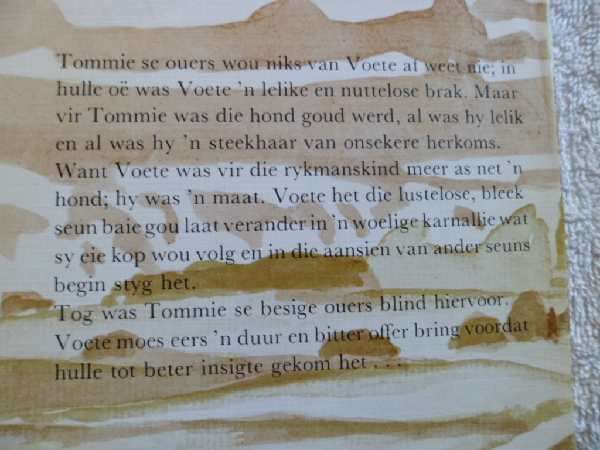 Tommie se ouers wou niks van Voete af weet nie; in
hulle oë was Voete 'n lelike en nuttelose brak. Maar
vir Tommie was die hond goud werd, al was hy lelik
en al was hy 'n steekhaar van onsekere herkoms.
Want Voete was vir die rykmanskind meer as net 'n
hond; hy was 'n maat. Voete het die lustelose, bleek
seun baie gou laat verander in 'n woelige karnallie wat
sy eie kop wou volg en in die aansien van ander seuns
begin styg het.
Tog was Tommie se besige ouers blind hiervoor.
Voete moes eers 'n duur en bitter offer bring voordat
hulle tot beter insigte gekom het . . .